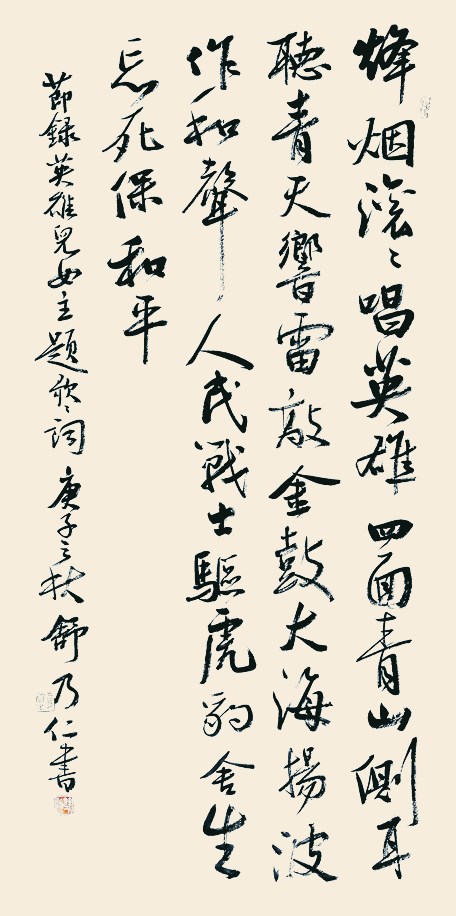 烽烟滚〻唱英雄四面青山侧耳
聽青天響雷敲金鼓大海揚波
作和聲人民戰士驅虎豹舍生
忘死保和平
節録英雄兒女主題歌詞庚子之秋舒乃仁書